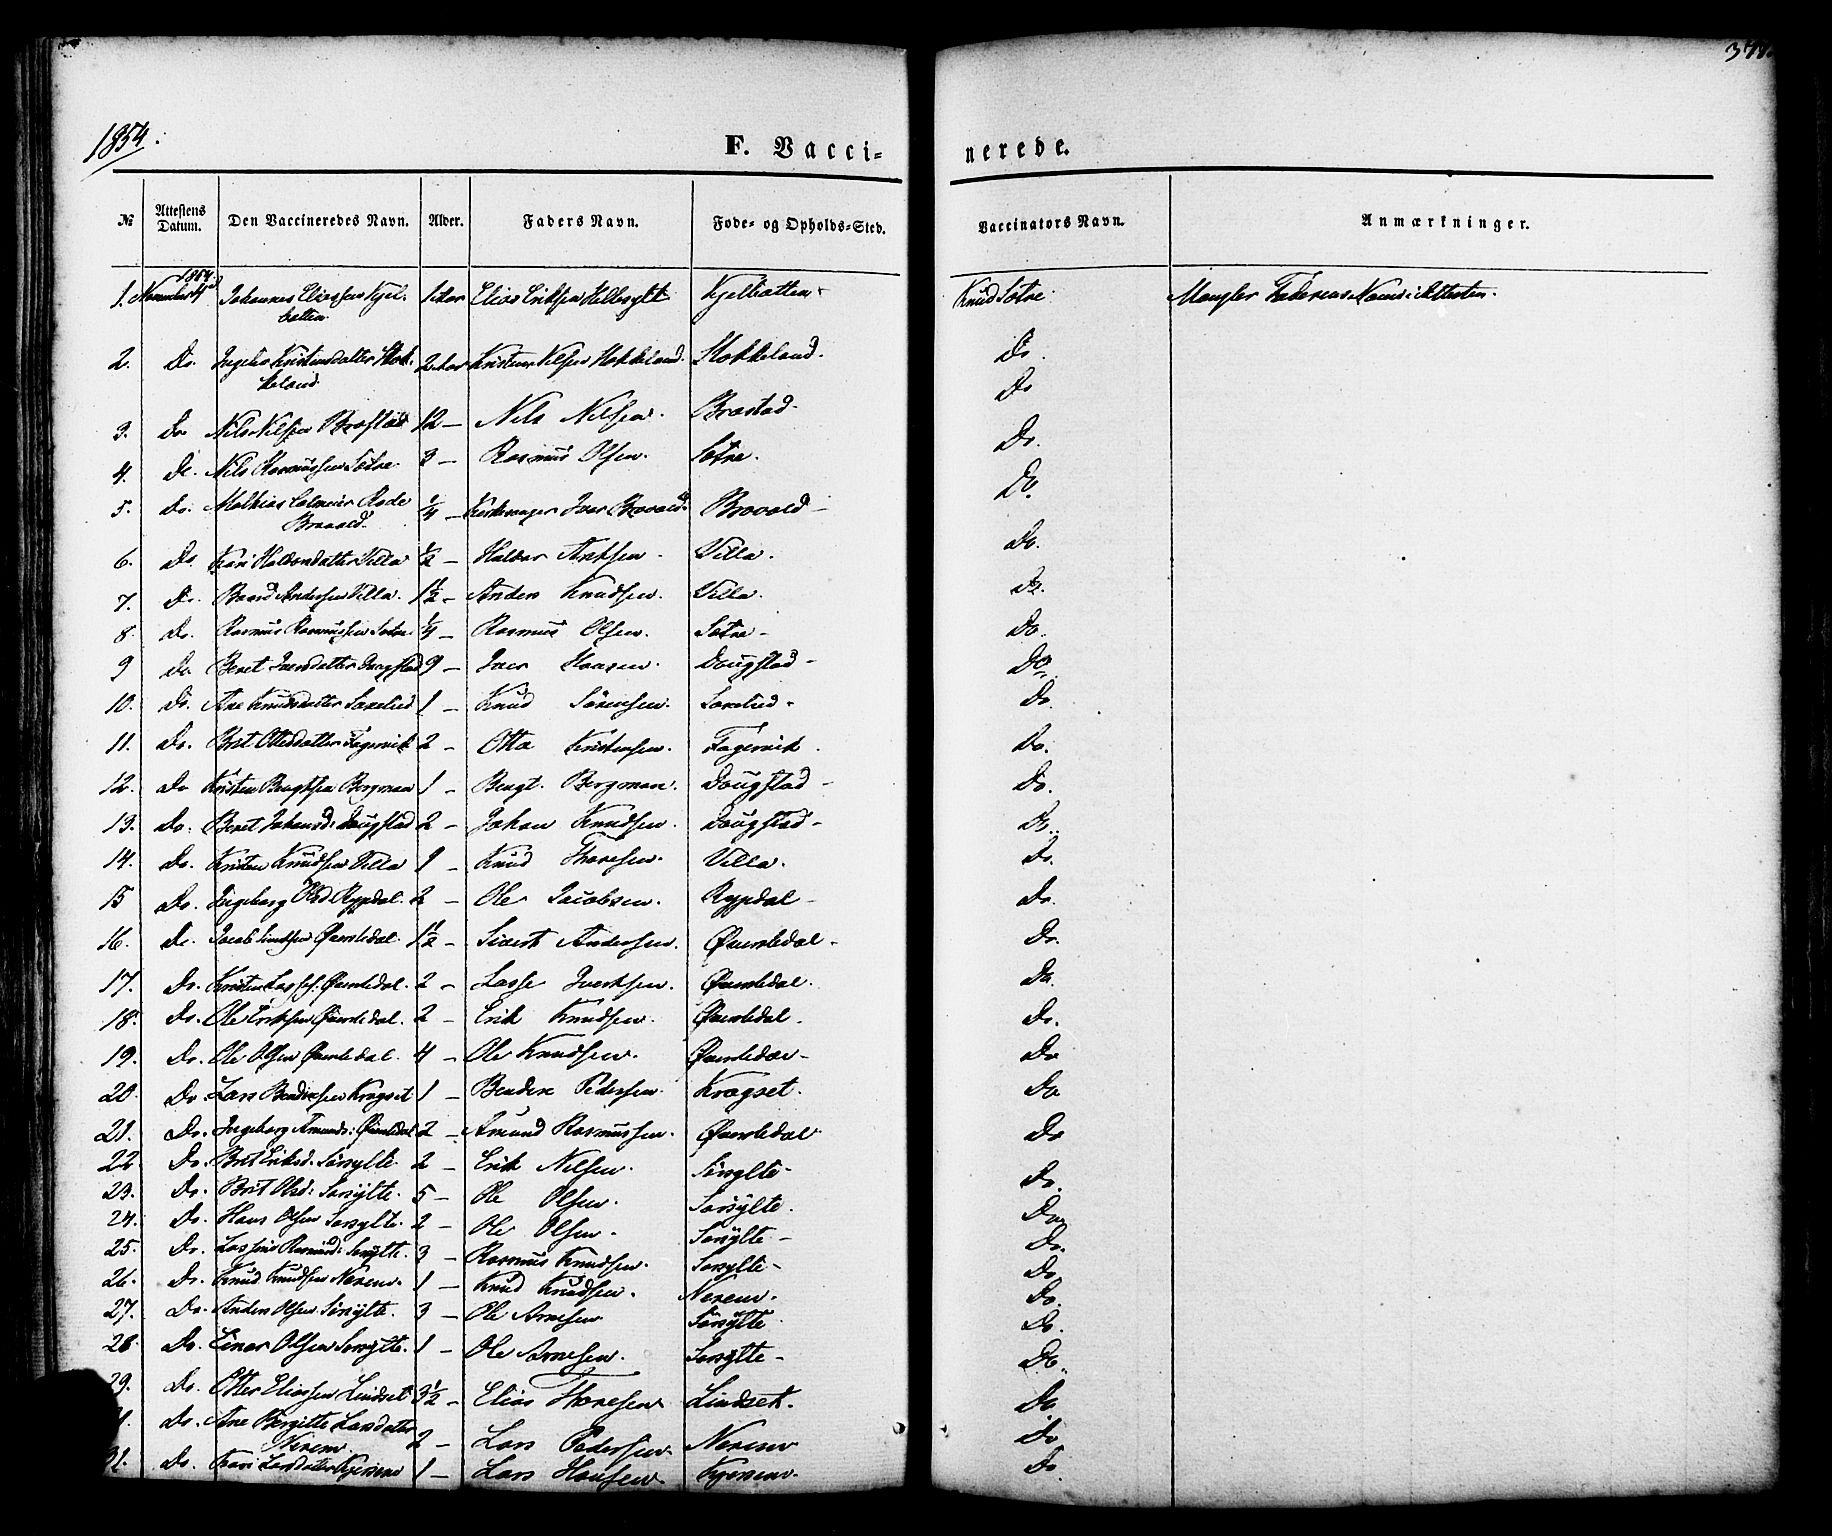 1854.
F. Vacci-
nerede.
№ Attestens Datum. Den Vaccineredes Navn. Alder. Faders Navn. Føde- og Opholds-Sted. Vaccinators Navn. Anmærkninger.
1. November 1854 Johannes Eliassen Kjelbotten 1 Aar Elias Eriksen Hellesylt Kjelbotten Knud Sætre Mangler Faderens Navn i Attesten.
2. Do. Kristensdatter Stokkeland 2 Aar Kristen Nilsen Stokkeland. Stokkeland. Do.
3. Do. Nils Nilsen Brastad 12 – Nils Nilsen. Brastad – Do
4. Do. Nils Rasmussen Sætre. 3 – Rasmus Olsen. Sætre. Do.
5. Do. Mathias Rode Bravold ¼ – Kirkesanger Iver Bravold Bravold – Do.
6. Do. Kari Villa ½ – Villa. Do.
7. Do. Baard Andersen Villa. 1½ – Anders Knudsen. Villa. Do.
8. Do. Rasmus Rasmussen Sætre. ¼ – Rasmus Olsen. Sætre – Do.
9 Do. Beret Iversdatter Dougstad 9 – Iver Dougstad – Do.
10. Do. Ane Knudsdatter 1 – Knud Sørensen. Do.
11. Do. Brit Ottesdatter Fagervik 2 – Otto Kristensen. Fagervik. Do.
12. Do Kristen Bengtsen Bergman 1 – Bengt Bergman. Dougstad – Do.
13. Do. Beret Johansd: Dougstad 2 – Johan Knudsen. Dougstad – Do.
14. Do. Kristen Knudsen Villa 9 – Knud Thoresen. Villa. Do.
15 Do. Ingeborg Olsd Rypdal. 2 – Ole Jacobsen. Rypdal – Do.
16. Do. Jacob Øvrebdal. 1½ – Sivert Andersen. Do.
17. Do. Kristen Lasses. 2 – Lasse Do.
18. Do. Ole Eriksen 2 – Erik Knudsen. Do.
19. Do. Ole Olsen 4 – Ole Knudsen. Do
20. Do Lars Bendixsen Kragset 1 – Bendix Pedersen. Kragset. Do
21. Do. Ingeborg Amunds: 2 – Amund Rasmussen. Do
22. Do. Brit Eriksd. Sørsylte. 2 – Erik Nilsen. Sørsylte – Do.
23. Do. Brit Olsd: Sørsylte. 5 – Ole Olsen. Sørsylte. Do
24. Do. Hans Olsen Sørsylte. 2 – Ole Olsen. Sørsylte – Do.
25. Do. Rasmusd: Sørsylte. 3 – Rasmus Knudsen. Sørsylte – Do.
26. Do. Knud Knudsen Nerem. 1 – Knud Knudsen. Nerem. Do.
27. Do. Anders Olsen Sørsylte. 3 – Ole Arnesen Sørsylte Do.
28. Do. Einar Olsen Sørsylte. 1 – Ole Arnesen. Sørsylte – Do.
29. Do. Eliassen Lindset 3½ – Elias Thoresen Lindset. Do
Do. Ane Birgitte Larsdatter Nerem. 2 – Lars Pedersen. Nerem Do
31. Do. Kari Larsdatter 1 – Lars Hansen. Do.